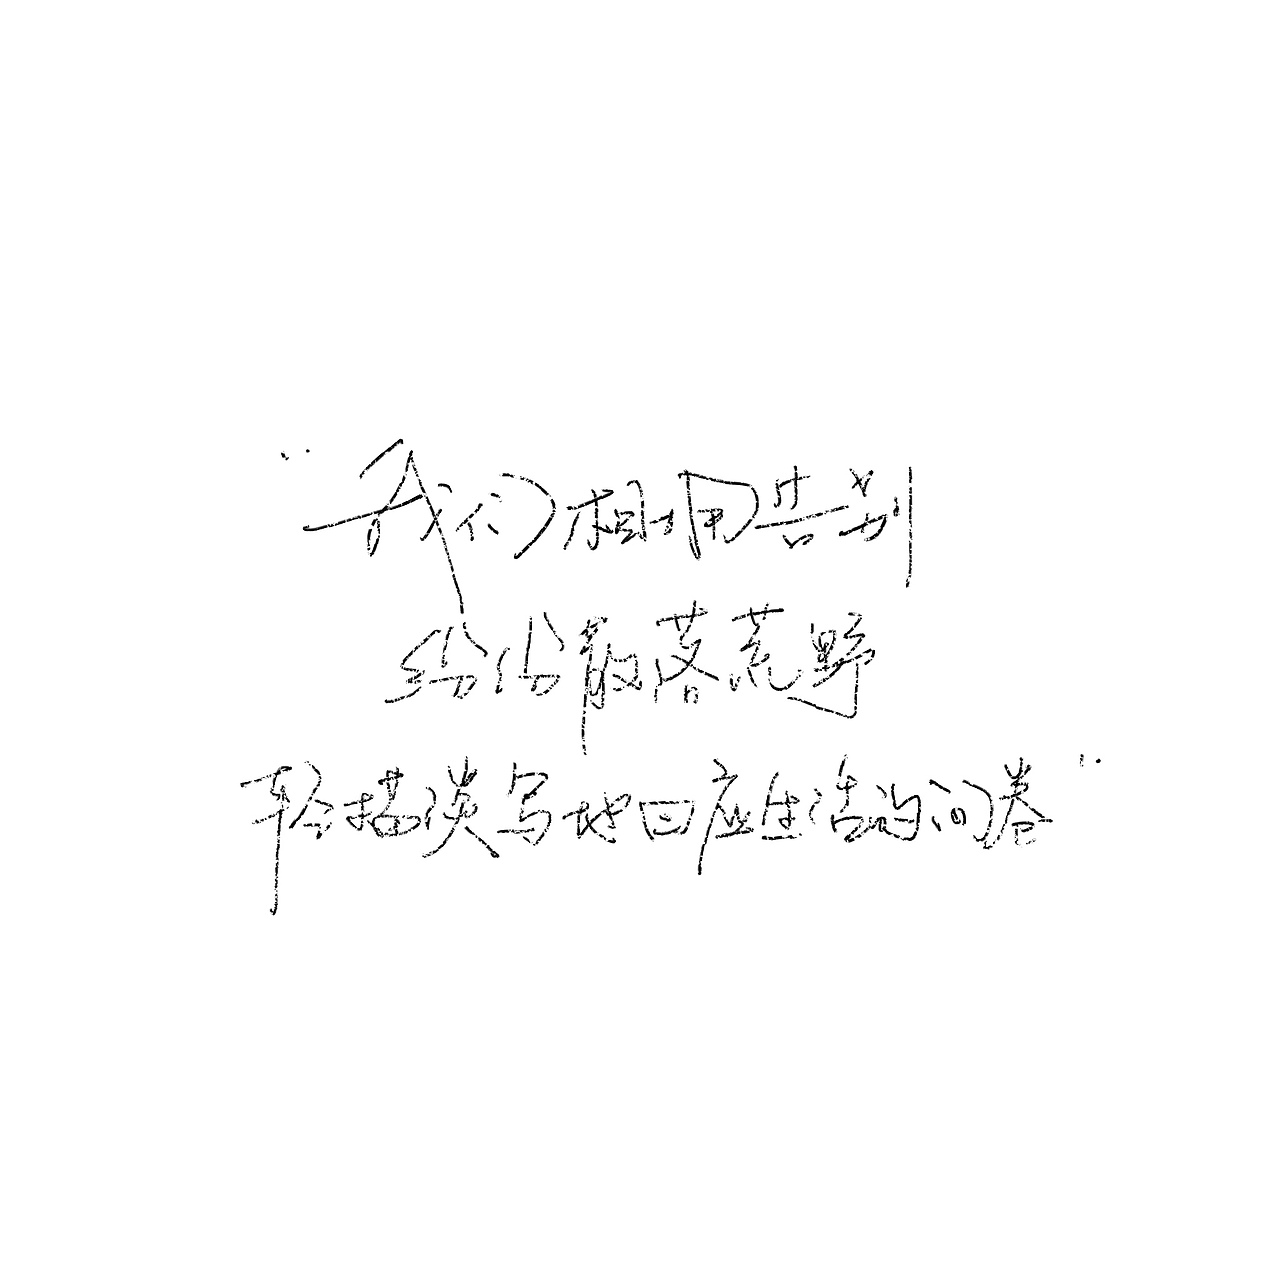 “我们相拥告别
纷纷散落荒野
轻描淡写地回应生活的问卷”